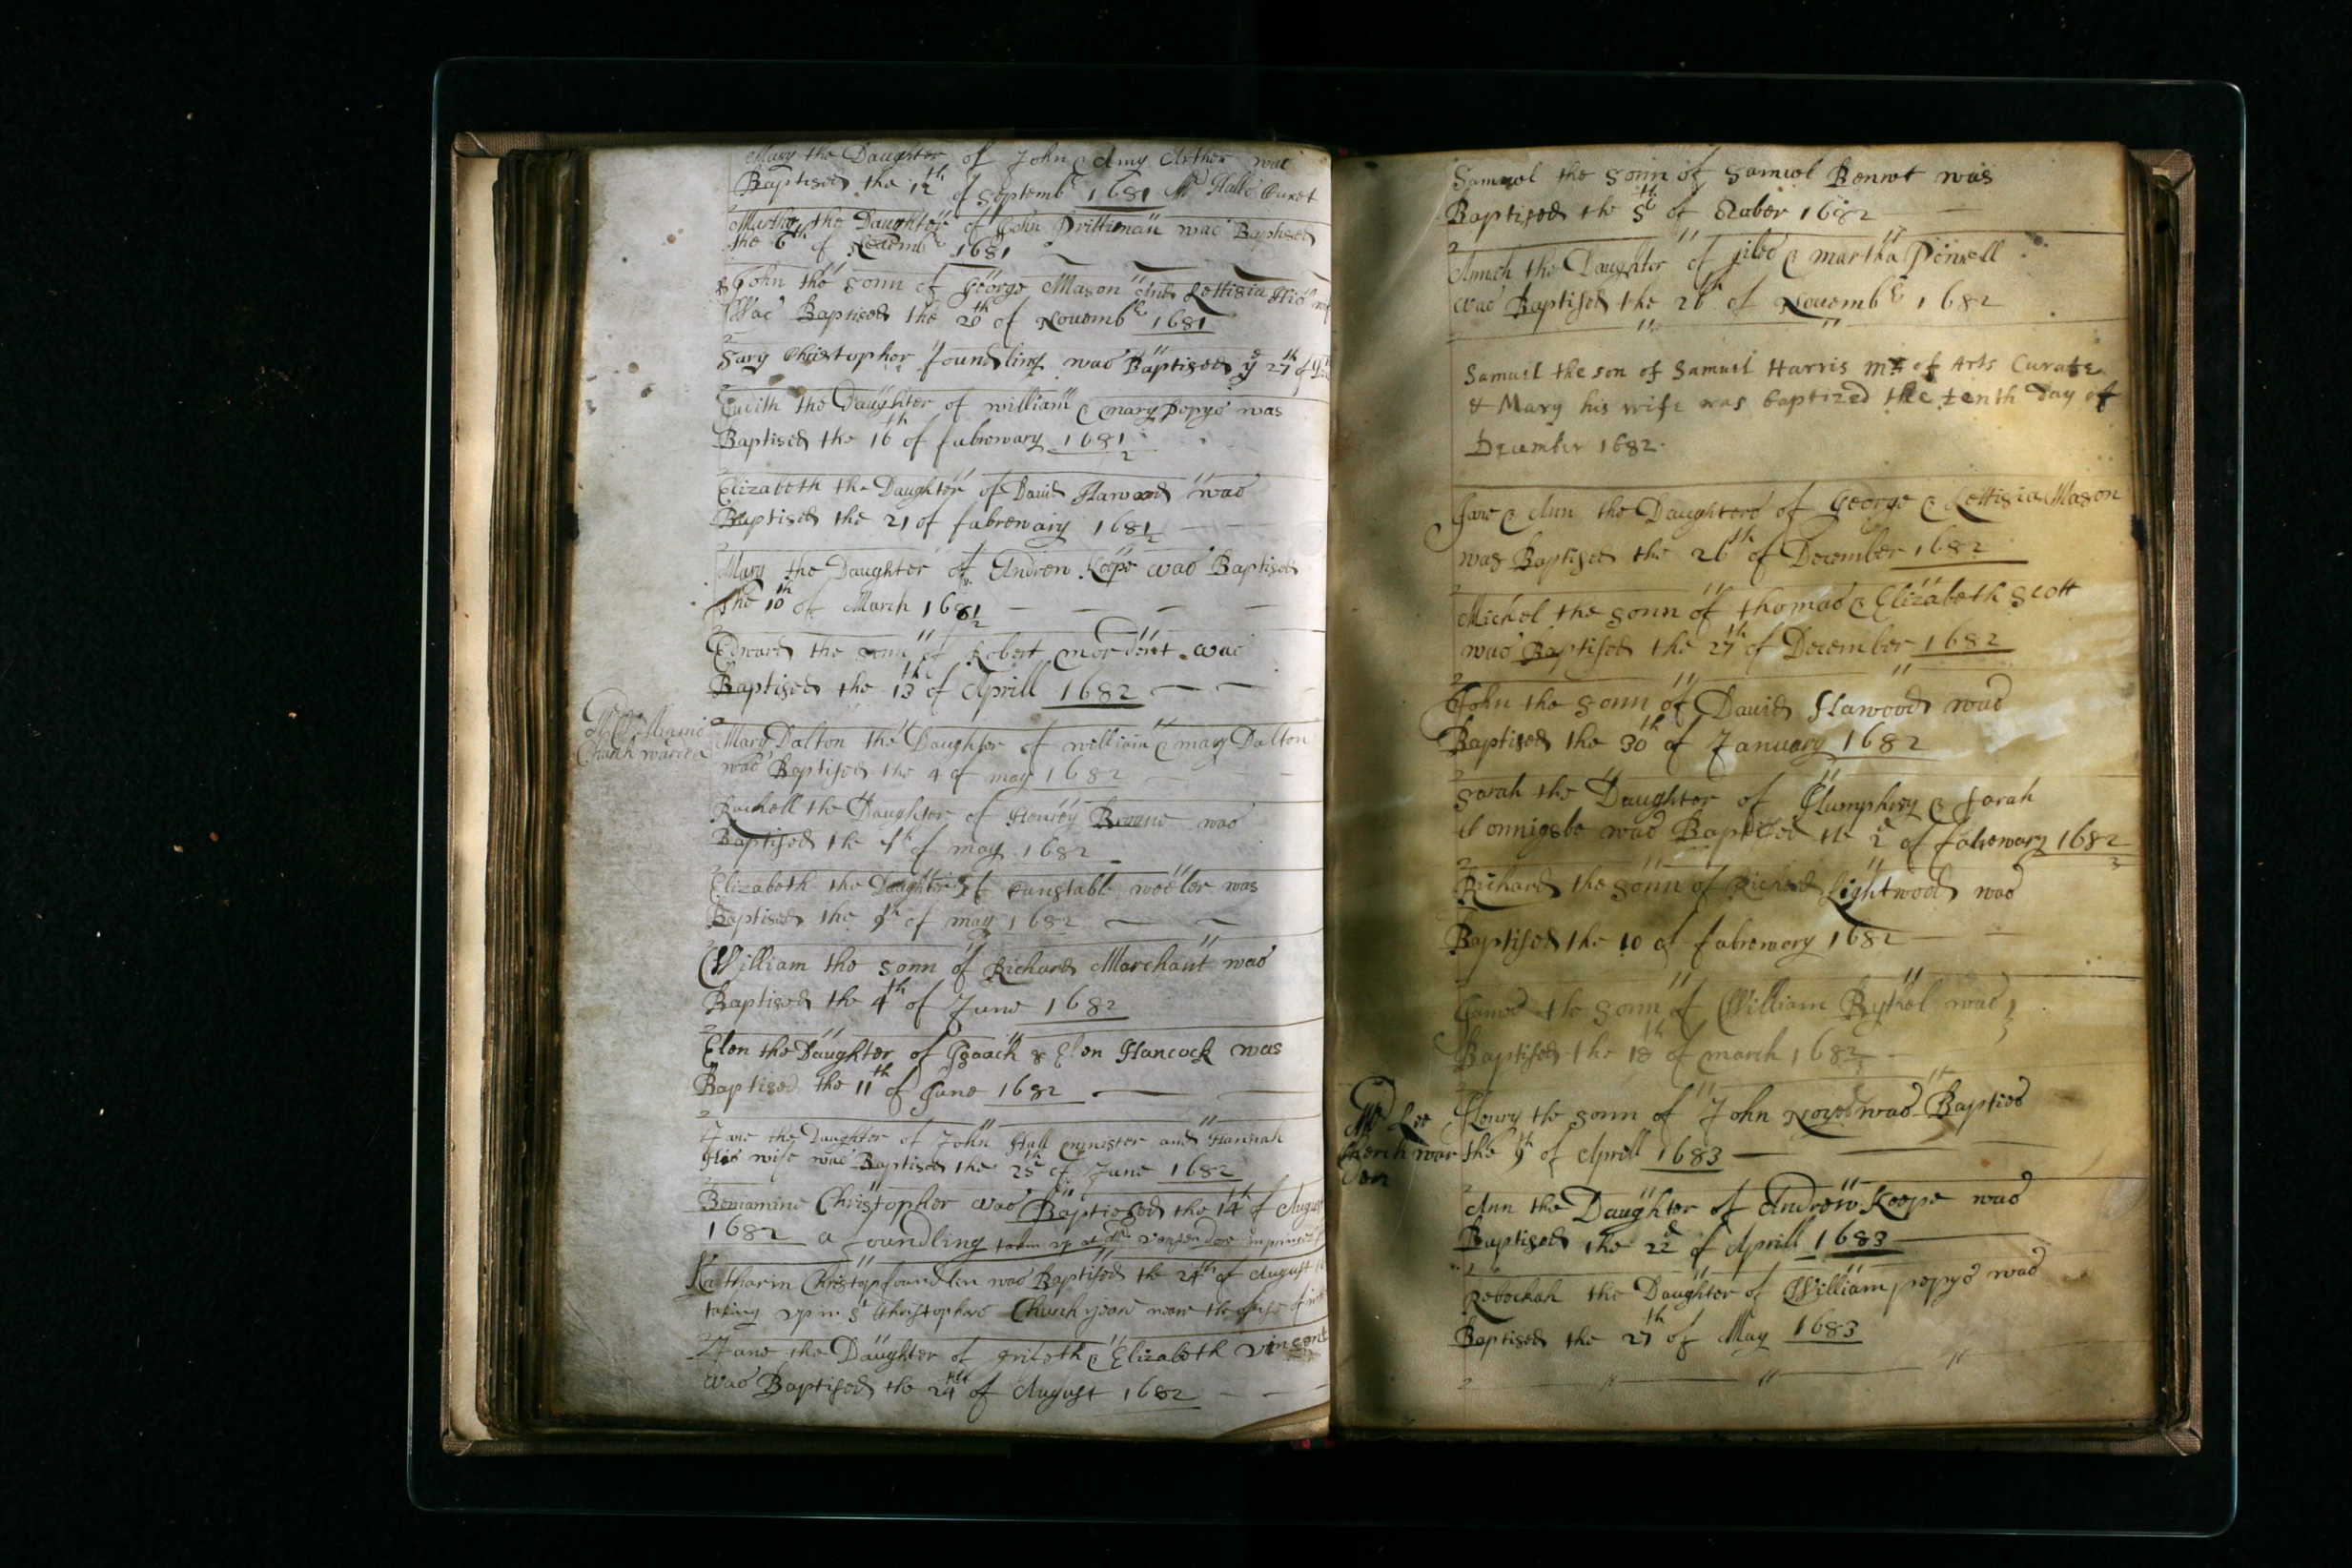 Mary the Daughter of John & Amy Arther was
Baptised the 12th of Septembr 1681 Mr Halls Curet
Martha the Daughter of John Prittiman was Baptised
the 6th of Novembr 1681
John the sonn of George Mason And Lettisia His
Was Baptised the 20th of Novembr 1681
Sary Christopher foundling was Baptised ye 27th of
Judith the Daughter of william & mary Pepys was
Baptised the 16th of fabrewary 1681/2
Elizabeth the Daughter of David Harwood was
Baptised the 21 of fabrewairy 1681/2
Mary the Daughter of Andrew Keepe was Baptised
the 10th of March 1681/2
Edward the sonn of Robert Mordent was
Baptised the 13th of Aprill 1682
Mary Dalton the Daughter of william & mary Dalton
was Baptised the 4 of may 1682
Rachell the Daughter of Henrey Browne was
Baptised the of may 1682
Elizabeth the Daughter of Cunstable was
Baptised the 9th of may 1682
William the sonn of Richard Marchant was
Baptised the 4th of June 1682
Elen the Daughter of Isaack & Elen Hancock was
Baptised the 11th of June 1682
Jane the Daughter of John Hall minister and Hannah
His wife was Baptised the 25th of June 1682
Beniamine Christopher was Baptiesed the 14th of August
1682 a foundling taken vp at
Katharin Christop foundlin was Baptised the 24th of August
taking vp in St Christophers Church yeard neare the
Jane the Daughter of grifeth & Elizabeth Vincent
was Baptised the 24th of August 1682
Samuel the sonn of Samuel Bennet was
Baptised the 5th of 8tober 1682
Annah the Daughter of Jiles & martha Pinnell
was Baptised the 26th of Novembr 1682
Samuel the son of Samuel Harris Mr of Arts Curate
& Mary his wife was baptized the tenth day of
December 1682.
Jane & Ann the Daughters of George & Lettisia Mason
was Baptised the 26th of December 1682
Mickel the sonn of thomas & Elizabeth Scott
was Baptised the 27th of December 1682
John the sonn of David Harwood was
Baptised the 30th of January 1682
Sarah the Daughter of Humphrey & Sarah
was Baptised the 2d of fabrewary 1682/3
Richard the sonn of Richard Lightwood was
Baptised the 10 of fabrewary 1682
James the sonn of William was
Baptised the 18th of march 1682/3
Mr Lee
Cherch war
den
Henry the sonn of John Noyes was Baptied
the 9th of Aprill 1683
Ann the Daughter of Andrew Keepe was
Baptised the 22d of Aprill 1683
Rebeckah the Daughter of William pepys was
Baptised the 27th of May 1683